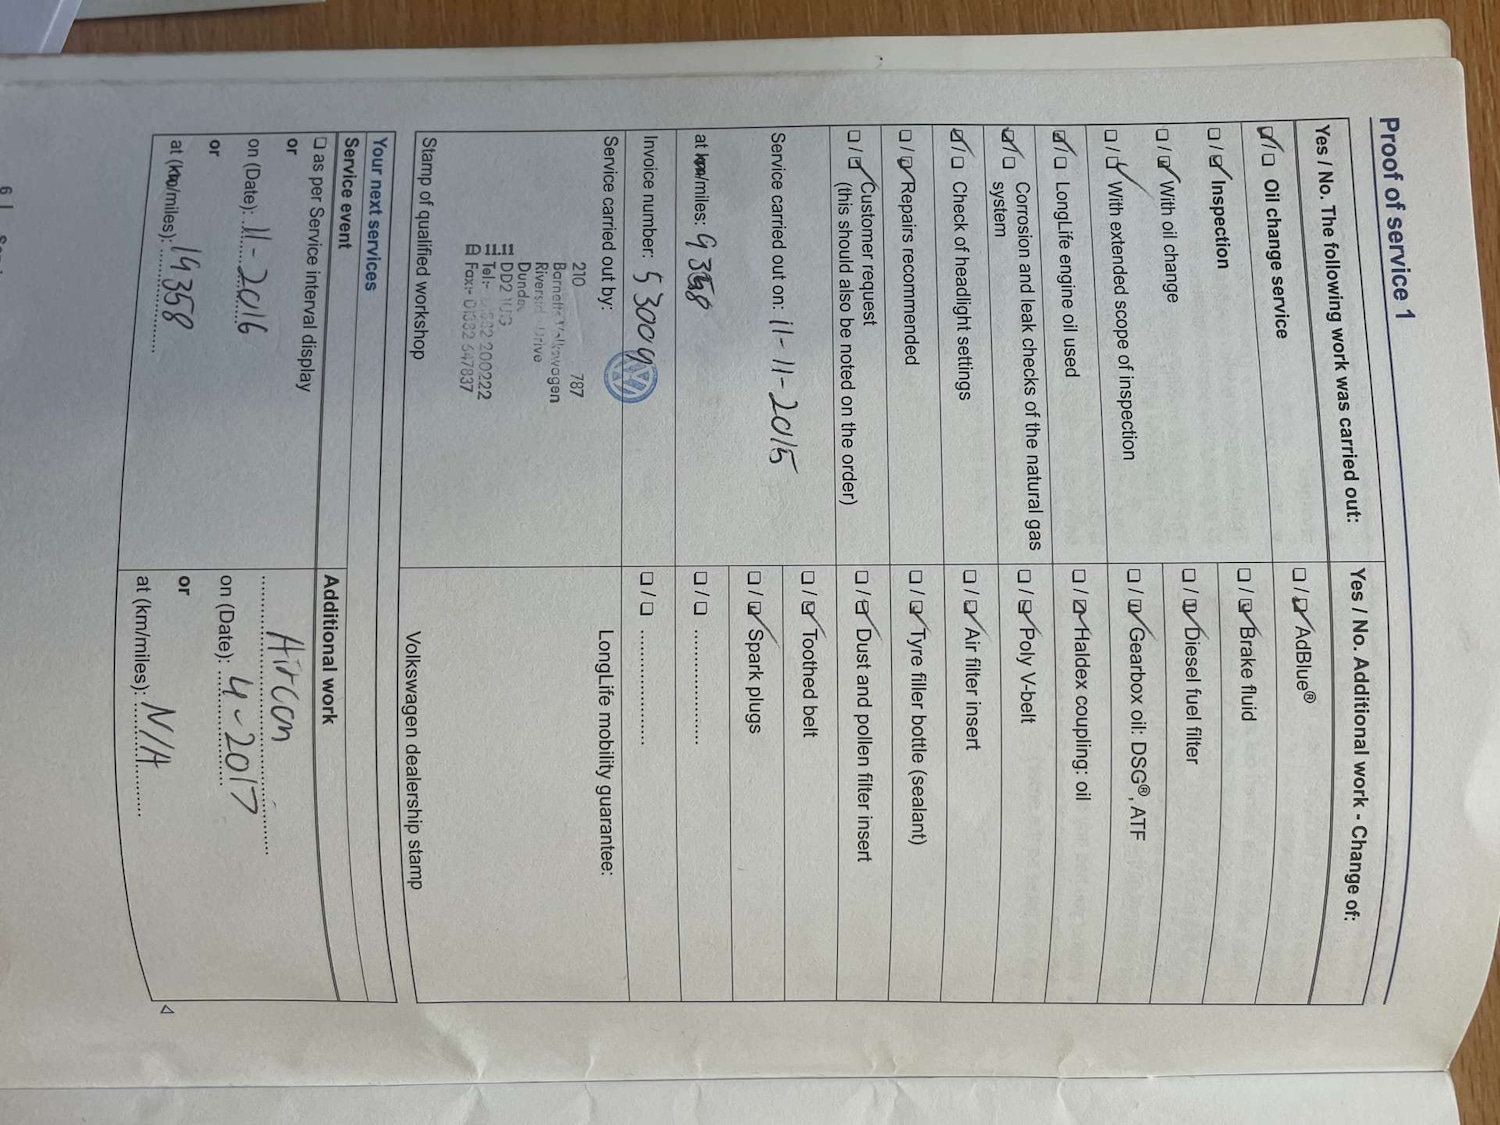 Proof of service 1
Yes / No. The following work was carried out:
☑ / ☐ Oil change service
☐ / ☑ Inspection
☐ / ☑ With oil change
☐ / ☑ With extended scope of inspection
☑ / ☐ LongLife engine oil used
☑ / ☐ Corrosion and leak checks of the natural gas
system
☑ / ☐ Check of headlight settings
☐ / ☑ Repairs recommended
☐ / ☑ Customer request
(this should also be noted on the order)
Service carried out on: 11-11-2015
at km/miles: 9358
Invoice number: 53009
Service carried out by:
210 787
Barnetts Volkswagen
Riverside Drive
Dundee
DD2 1UG
Tel:- 200222
Fax:- 01382 647837
Stamp of qualified workshop
Yes / No. Additional work - Change of:
☐ / ☑ AdBlue®
☐ / ☑ Brake fluid
☐ / ☑ Diesel fuel filter
☐ / ☑ Gearbox oil: DSG®, ATF
☐ / ☑ Haldex coupling: oil
☐ / ☑ Poly V-belt
☐ / ☑ Air filter insert
☐ / ☑ Tyre filler bottle (sealant)
☐ / ☑ Dust and pollen filter insert
☐ / ☑ Toothed belt
☐ / ☑ Spark plugs
☐ / ☐ ....................
☐ / ☐ ....................
LongLife mobility guarantee:
Volkswagen dealership stamp
Your next services
Service event
☐ as per Service interval display
or
on (Date): 11-2016
or
at (km/miles): 19358
Additional work
Aircon
on (Date): 4-2017
or
at (km/miles): N/A
6